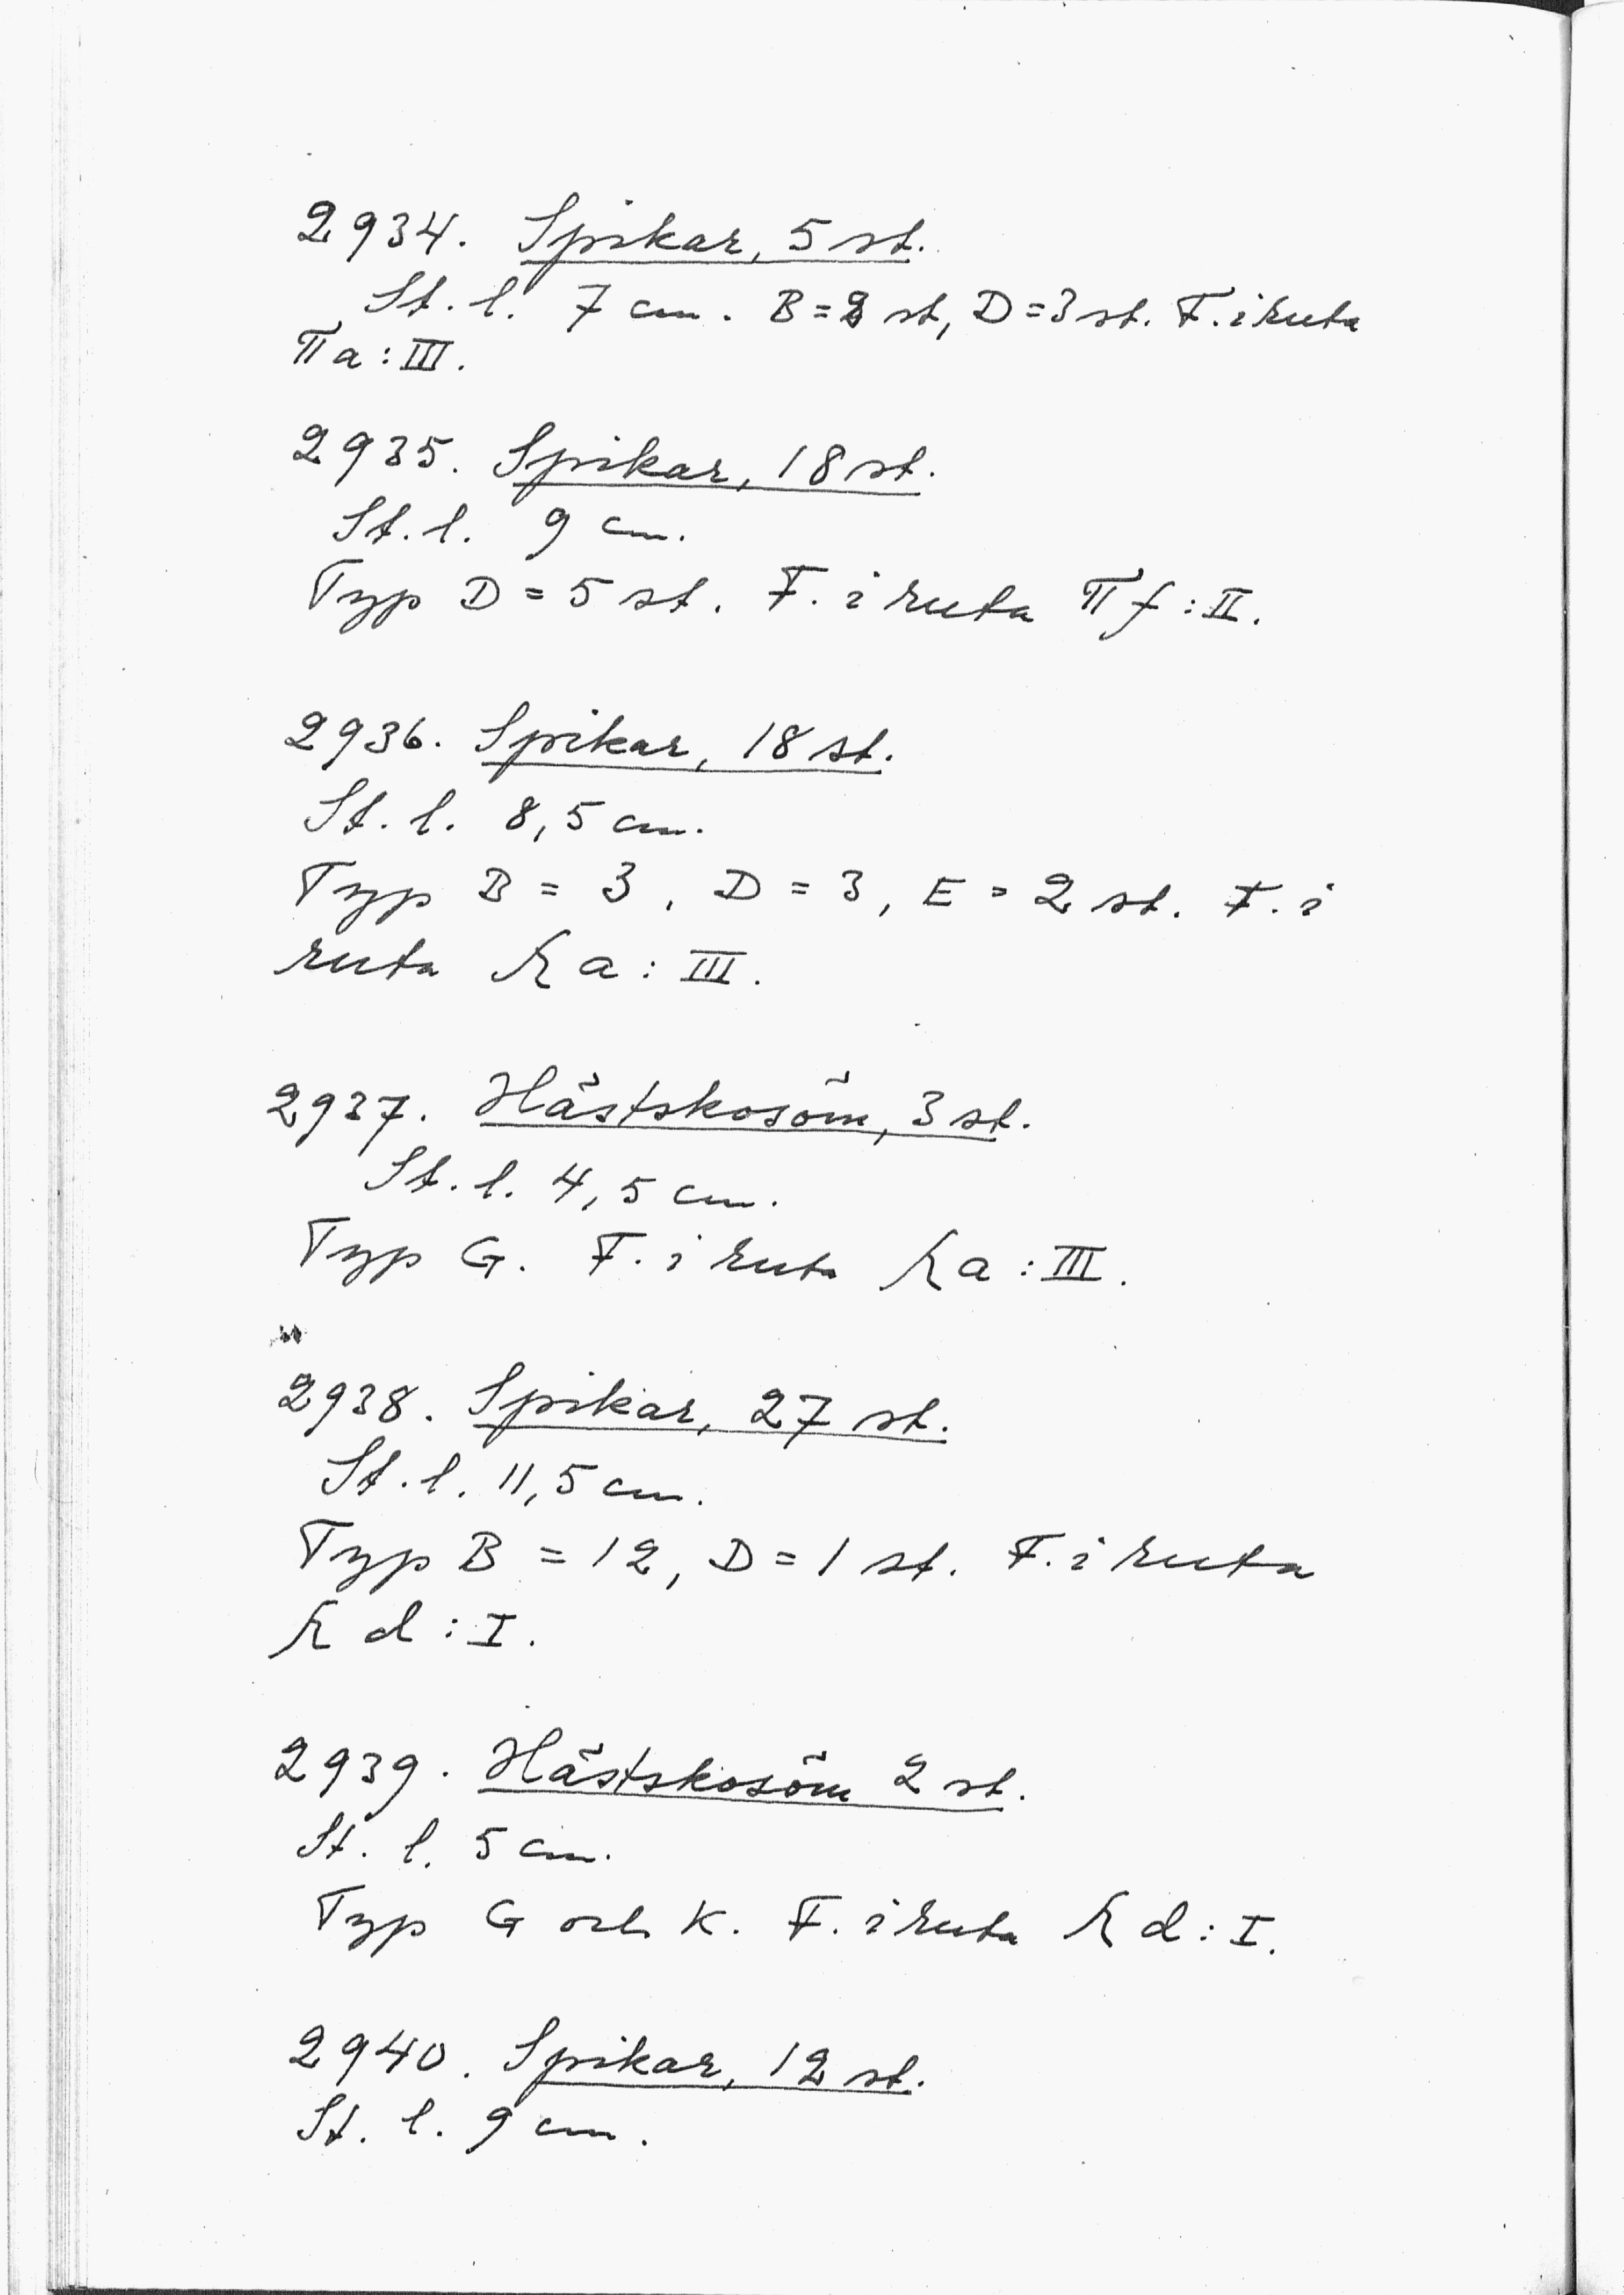 2934. Spikar, 5 st.
St. l. 7 cm. B=2 st, D=3 st. F. i ruta
Π a : III.
2935. Spikar, 18 st.
St. l. 9 cm.
Typ D = 5 st. F. i ruta Π f : II.
2936. Spikar, 18 st.
St. l. 8,5 cm.
Typ B = 3, D = 3, E = 2 st. F. i
ruta a : III.
2937. Hästskosöm, 3 st.
St. l. 4,5 cm.
Typ G. F. i ruta a : III.
2938. Spikar, 27 st.
St. l. 11,5 cm.
Typ B = 12, D = 1 st. F. i ruta
d : I.
2939. Hästskosöm 2 st.
St. l. 5 cm.
Typ G och K. F. i ruta d : I.
2940. Spikar, 12 st.
St. l. 9 cm.